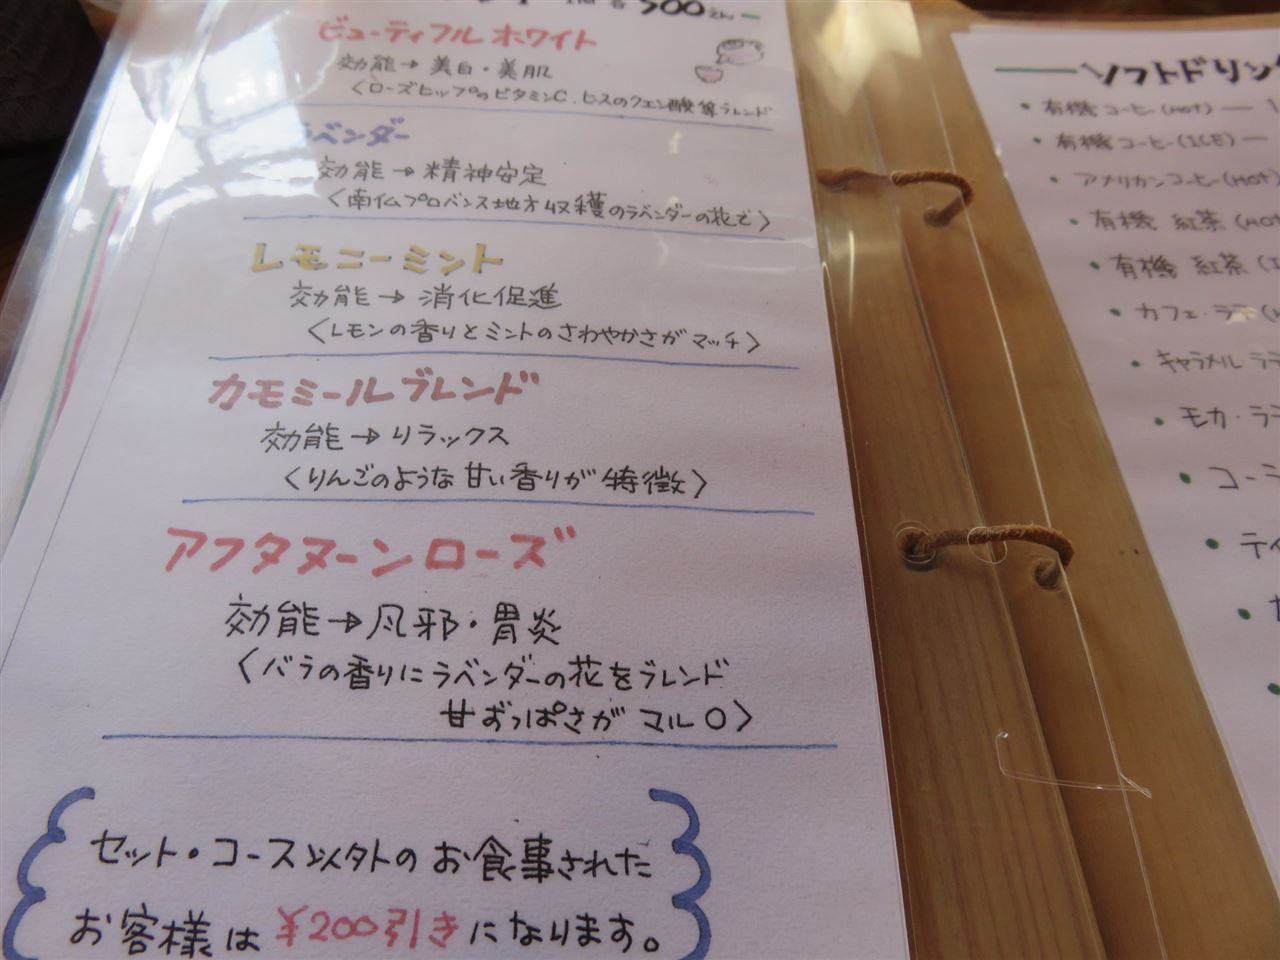 500えん
ビューティフルホワイト
効能→美白・美肌
〈ローズヒップのビタミンC.ヒスのクエン酸等ブレンド
ラベンダー
効能→精神安定
〈南仏プロバンス地方収穫のラベンダーの花で〉
レモニーミント
効能→消化促進
〈レモンの香りとミントのさわやかさがマッチ〉
カモミールブレンド
効能→リラックス
〈りんごのような甘い香りが特徴〉
アフタヌーンローズ
効能→風邪・胃炎
〈バラの香りにラベンダーの花をブレンド
甘ずっぱさがマル○〉
セット・コース以外のお食事された
お客様は¥200引きになります。
ソフトドリンク
・有機コーヒー(HOT)
・有機コーヒー(ICE)
・アメリカンコーヒー(HOT)
・有機 紅茶(HO
・有機 紅茶(I
・カフェ・ラテ(
・キャラメルラテ
・モカ・ラ
・コー
・ティ